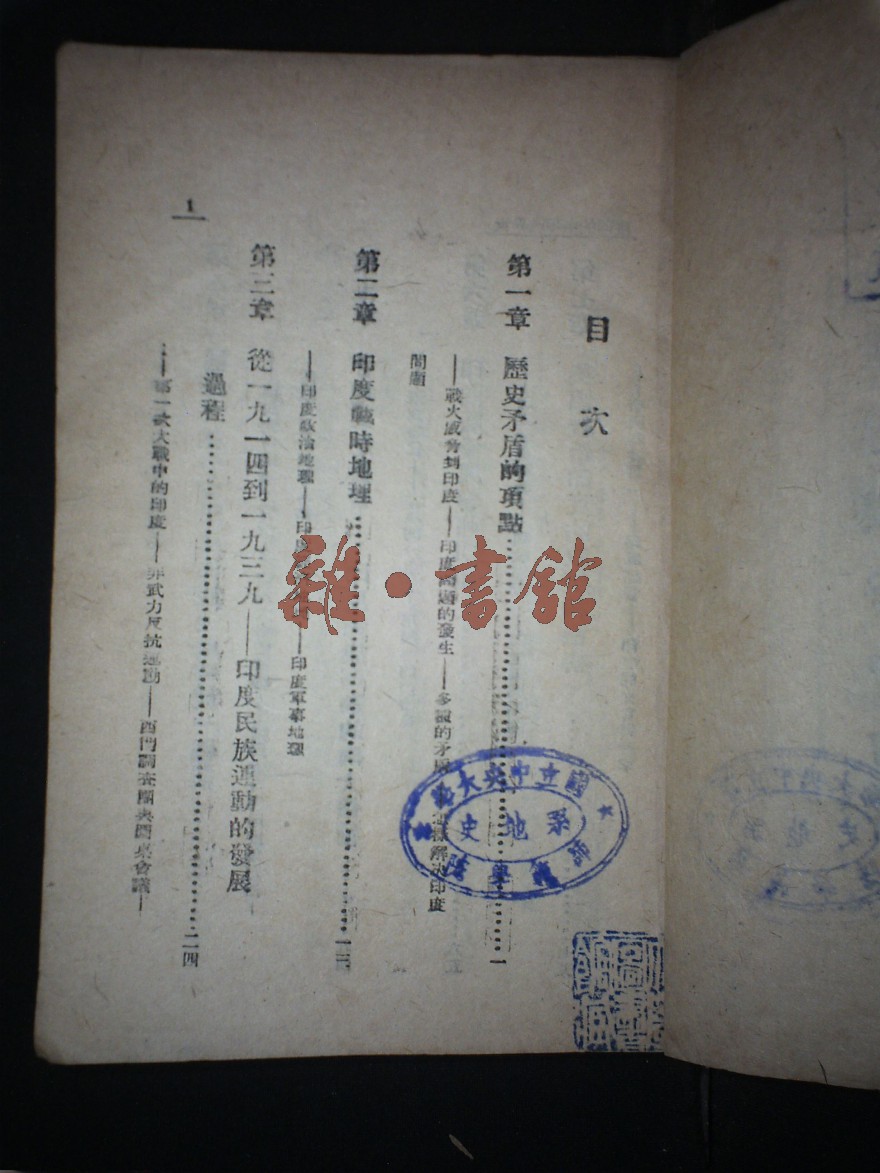 目次
第一章 歷史矛盾的頂點…………一
——戰火威脅到印度——印度問題的發生——多線的矛盾 解決印度
問題
第二章 印度戰時地理…………一三
——印度政治地理——印 ——印度軍事地理
第三章 從一九一四到一九三九——印度民族運動的發展
過程…………二四
——第一次大戰中的印度——非武力反抗運動——西門調查團與圓桌會議——
1
雜·書館
國立中央大學
師範學院
史地系